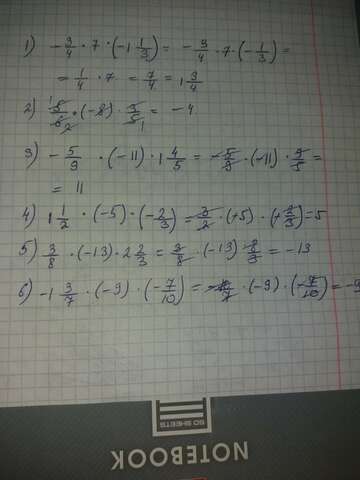 1) -3/4 · 7 · (-1 1/3) = -3/4 · 7 · (-1/3) =
= 1/4 · 7 = 7/4 = 1 3/4
2) 5/6 · (-8) · 3/5 = -4
3) -5/9 · (-11) · 1 4/5 = -5/9 · (-11) · 9/5 =
= 11
4) 1 1/2 · (-5) · (-2/3) = 3/2 · (+5) · (+2/3) = 5
5) 3/8 · (-13) · 2 2/3 = 3/8 · (-13) 8/3 = -13
6) -1 3/7 · (-9) · (-7/10) = -10/7 · (-9) · (-7/10) = -9
SO SHEETS
NOTEBOOK